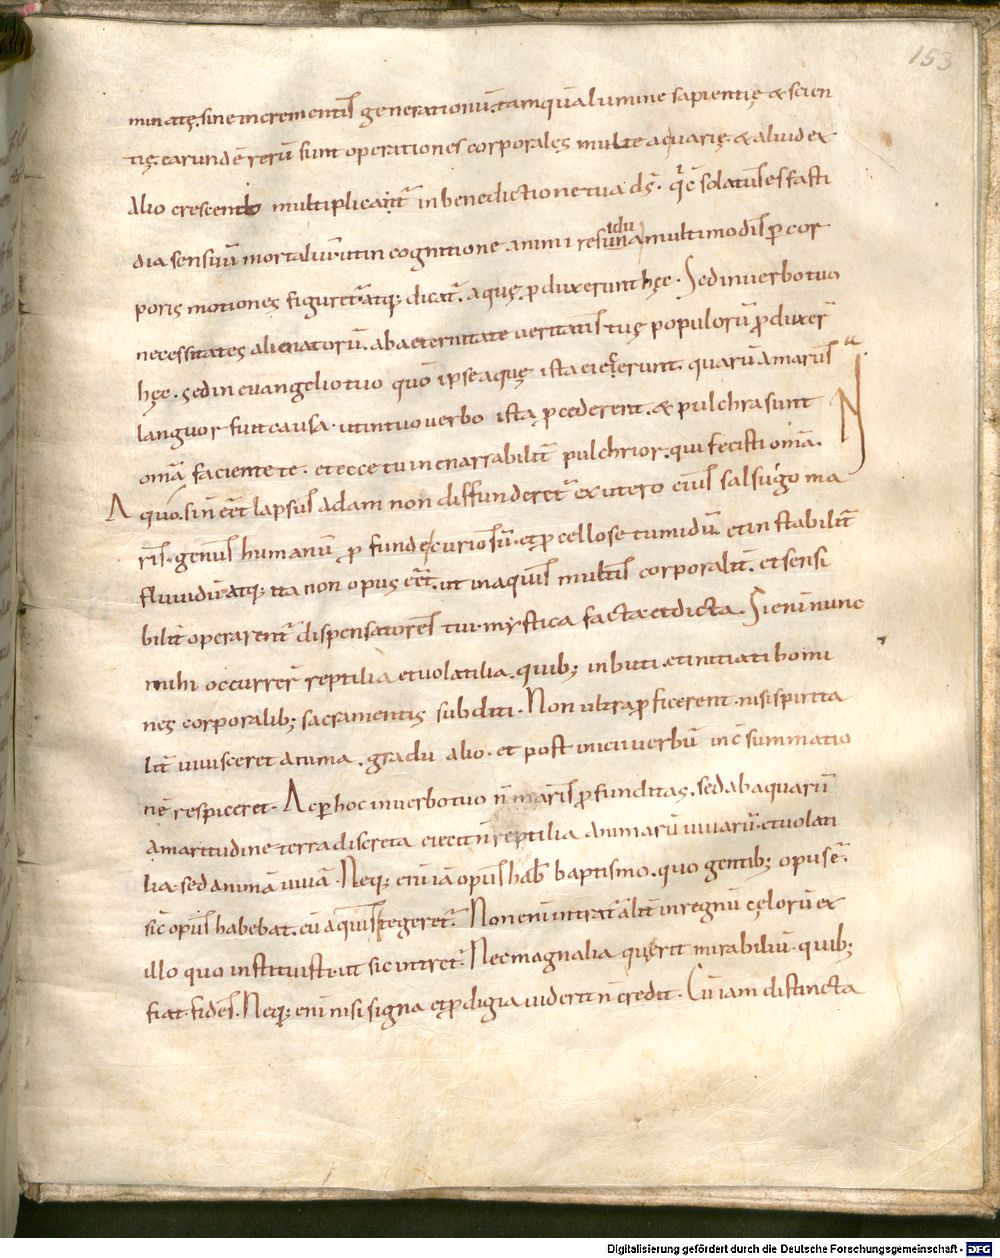 153
minatę. sine incrementis generationū. tamquā lumine sapientię & scien
tię. earundē rerū sunt operationes corporales multe ac uarię. & aliud ex
alio crescendo multiplicant̄ in benedictione tua ds̄. q̄ consolatus es fasti
dia sensuū mortaliū. ut in cognitione animi res una multimodis p cor
poris motiones figuret̄ atq; dicat̄. aquę pduxerunt hęc. Sed in uerbo tuo
necessitates alienatorū. ab aeternitate ueritatis tuę populorū pduxer̄
hęc. sed in euangelio tuo quō ipse aquę ista eiecerunt. quarū amarus
languor fuit causa. ut in tuo uerbo ista pcederent. & pulchra sunt
omā faciente te. et ecce tu inenarrabilit̄ pulchrior. qui fecisti omā.
A quo. si n̄ eēt lapsus adam non diffunderet̄ ex utero eius salsugo ma
ris. genus humanū p funde curiosū. et pcellose tumidū. et instabilit̄
fluuidū atq; ita non opus eēt. ut in aquis multis corporalit̄. et sensi
bilit̄ operarent̄ dispensatores tui mystica facta et dicta. Si enī nunc
mihi occurrer̄ reptilia et uolatilia. quib; inbuti. et initiati homi
nes corporalib; sacramentis subditi. Non ultra pficerent. nisi spirita
lit̄ uiuisceret anima. gradu alio. et post inicii uerbū in c̄summatio
nē respiceret. Ac p hoc in uerbo tuo n̄ maris pfunditas. sed ab aquarū
amaritudine terra discreta eiecit n̄ reptilia animarū uiuarū. et uolati
lia. sed animā uiuā. Neq; enī iā opus hab& baptismo. quo gentib; opus ē.
sic opus habebat. cū aquis tegeret̄. Non enī intrat̄ alit̄ in regnū cęlorū ex
illo quo instituisti. ut sic intret̄. Nec magnalia quęrit mirabiliū. quib;
fiat. fides. Neq; enī nisi signa et pdigia uiderit n̄ credit. Cū iam distincta
Digitalisierung gefördert durch die Deutsche Forschungsgemeinschaft - DFG